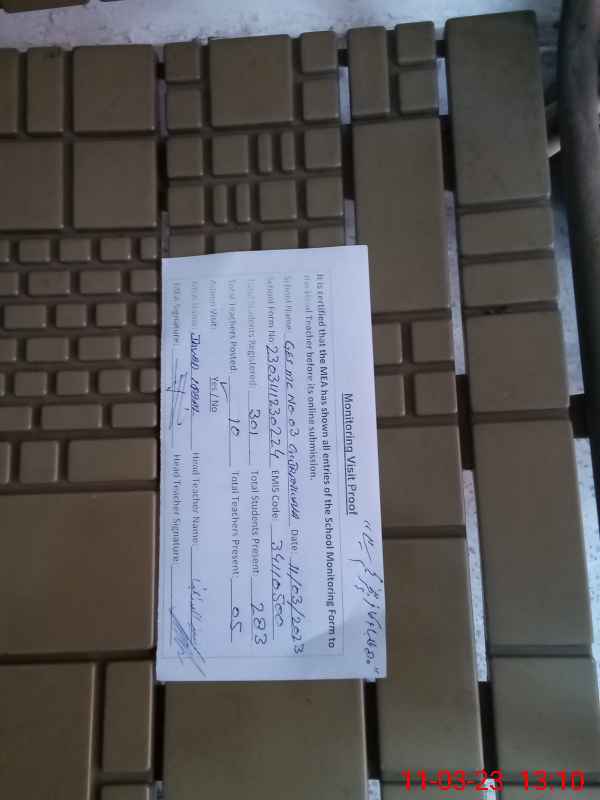 Monitoring Visit Proof
It is certified that the MEA has shown all entries of the School Monitoring Form to
the Head Teacher before its online submission.
School Name: GES MC NO 03 Date: 11/03/2023
School Form No: EMIS Code: 34110500
Total Students Registered: 301 Total Students Present: 283
Total Teachers Posted: 10 Total Teachers Present: 05
Admin Visit: Yes / No
MEA Name: Head Teacher Name:
MEA Signature: Head Teacher Signature:
11-03-23 13:10